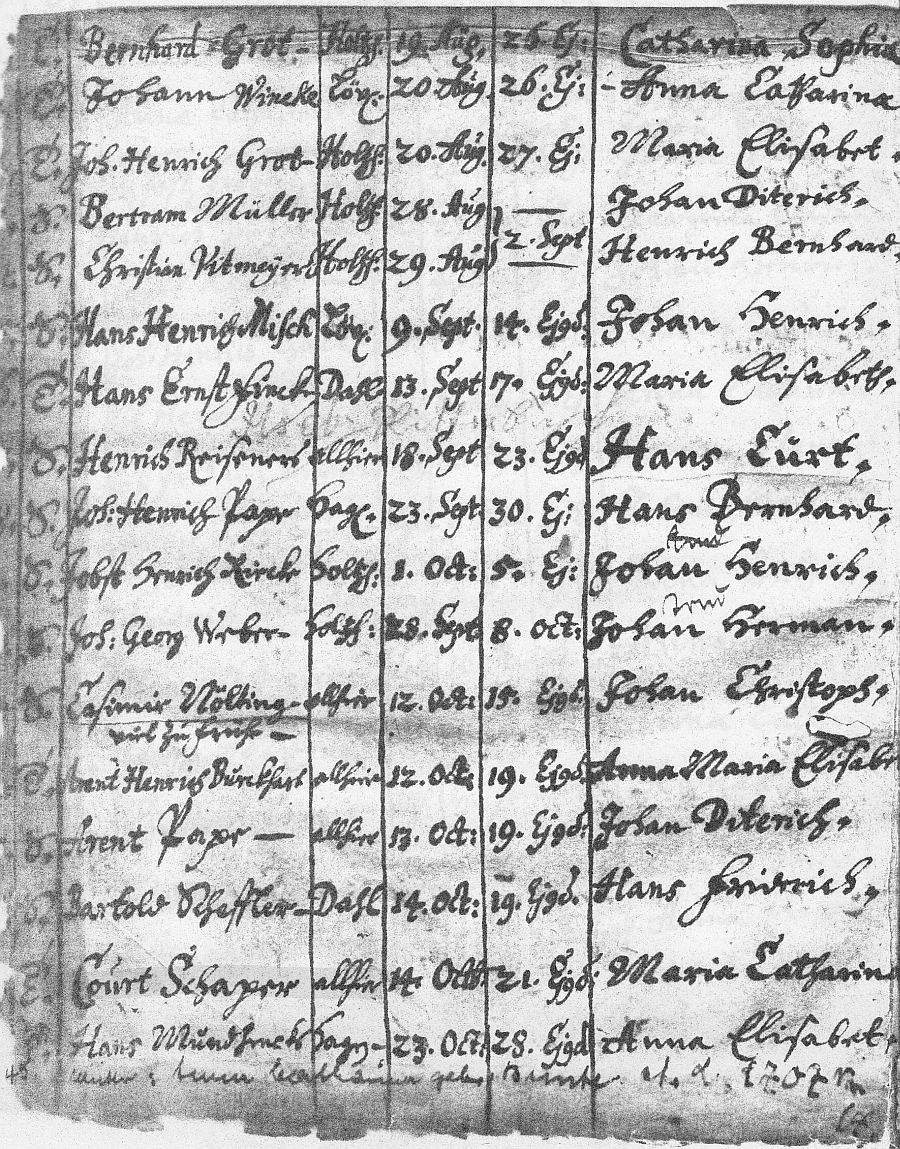 T. Bernhard Grot - Holtzh. 19. Aug. 26 Ej: Catharina Sophia
T. Johann Wineke 20. Aug. 26. Ej: - Anna Catharina
T. Joh. Henrich Grot - Holtzh. 20. Aug. 27. Ej: Maria Elisabet.
S. Bertram Müller Holtzh. 28. Aug — Johan Diterich.
S. Christian Pitmeyer Holtzh. 29. Aug 2. Sept Henrich Bernhard.
S. Hans Henrich Misch 9. Sept. 14. Ejgd. Johan Henrich.
T. Hans Ernst Dahl 13. Sept 17. Ejgd: Maria Elisabeth.
S. Henrich Reiseners allhier 18. Sept 23. Ejgd Hans Cürt.
S. Joh: Henrich Pape Hag. 23. Sept. 30. Ej: Hans Bernhard.
S. Jobst Henrich Holtzh: 1. Oct: 5. Ej: Johan Henrich.
S. Joh: Georg Weber - Holtzh: 28. Sept 8. Oct: Johan Herman.
S. Casimir Nölting - allhier 12. Oct: 15. Ejgd. Johan Christoph.
viel zu frühe —
T. Arent Henrich Burckhart allhier 12. Oct: 19. Ejgd: Anna Maria Elisabet
S. Arent Pape — allhier 13. Oct: 19. Ejgd: Johan Diterich.
S. Bartold Scheffler - Dahl 14. Oct: 19. Ejgd. Hans Friderich.
T. Court Schaper allhier 14. Oct: 21. Ejgd: Maria Catharina
T. Hans Mundhenck Hag - 23. Oct: 28. Ejgd Anna Elisabet.
Catharina geb. 1707